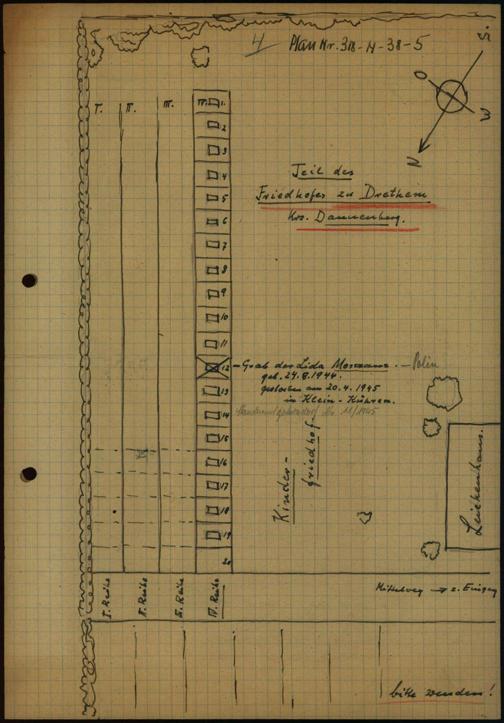 4 Plan Nr. 318-H-38-5
S.
O
W
N
I. II. III. IV. 1.
2
3
4
5
6
7
8
9
10
11
12
13
14
15
16
17
18
19
20
Teil des
Friedhofes zu Drethem
Krs. Dannenberg.
Grab der Lida - Polin
geb. 24.8.1944.
gestorben am 20.4.1945
in Klein-Kühren.
11/1945
Kinder-
friedhof
Leichenhaus.
I. Reihe
II. Reihe
III. Reihe
IV. Reihe
Mittelweg → z. Eingang
bitte wenden!